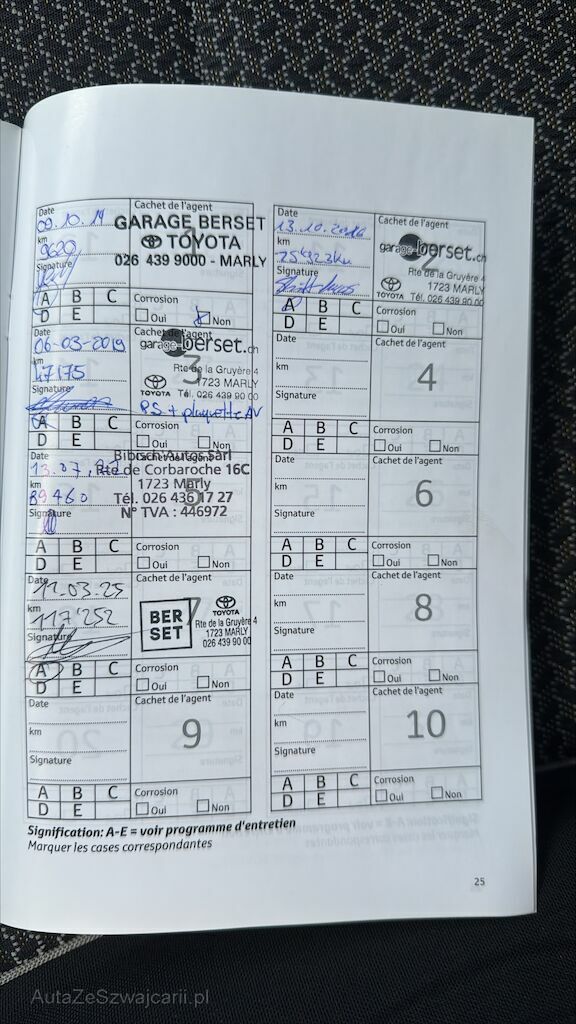 Date
09.10.14
km
9620
Signature
Cachet de l'agent
1
GARAGE BERSET
TOYOTA
026 439 9000 - MARLY
A B C
D E
Corrosion
Oui Non
Date
13.10.2016
km
25'323 km
Signature
Cachet de l'agent
2
garage-berset.ch
Rte de la Gruyère 4
1723 MARLY
TOYOTA Tél. 026 439 90 00
A B C
D E
Corrosion
Oui Non
Date
06-03-2019
km
47175
Signature
Cachet de l'agent
3
garage-berset.ch
Rte de la Gruyère 4
1723 MARLY
TOYOTA Tél. 026 439 90 00
PS + plaquette AV
A B C
D E
Corrosion
Oui Non
Date
km
Signature
Cachet de l'agent
4
A B C
D E
Corrosion
Oui Non
Date
13.07.
km
89460
Signature
Cachet de l'agent
5
Bibisch Autos Sàrl
Rte de Corbaroche 16C
1723 Marly
Tél. 026 436 17 27
N° TVA : 446972
A B C
D E
Corrosion
Oui Non
Date
km
Signature
Cachet de l'agent
6
A B C
D E
Corrosion
Oui Non
Date
11-03-25
km
117'252
Signature
Cachet de l'agent
7
BER
SET
TOYOTA
Rte de la Gruyère 4
1723 MARLY
026 439 90 00
A B C
D E
Corrosion
Oui Non
Date
km
Signature
Cachet de l'agent
8
A B C
D E
Corrosion
Oui Non
Date
km
Signature
Cachet de l'agent
9
A B C
D E
Corrosion
Oui Non
Date
km
Signature
Cachet de l'agent
10
A B C
D E
Corrosion
Oui Non
Signification: A-E = voir programme d'entretien
Marquer les cases correspondantes
25
AutaZeSzwajcarii.pl